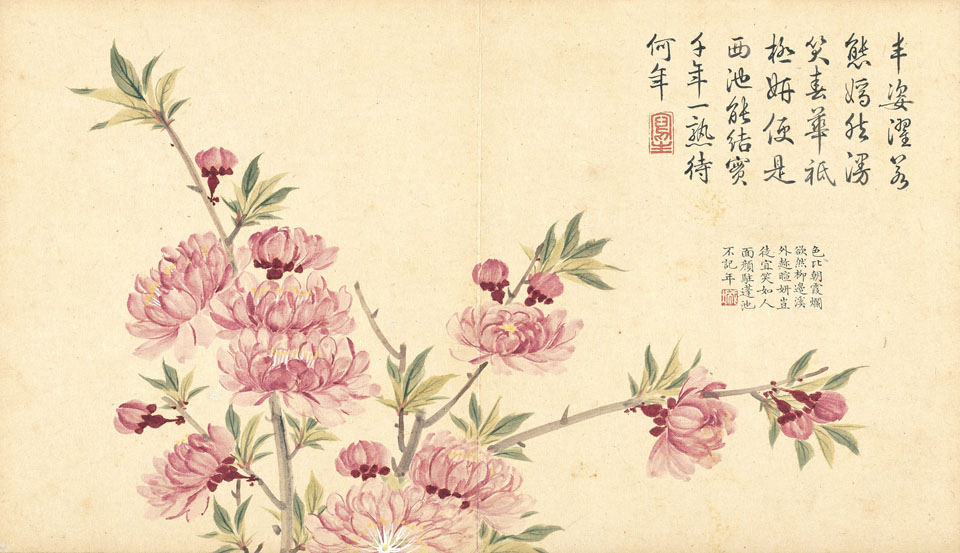 丰姿濯濯
態嫣然漫
笑春華祗
極妍便是
西池能結實
千年一熟待
何年
色比朝霞爛
欲然柳邊溪
外趂暄妍豈
徒宜笑如人
面顔駐蓬池
不記年